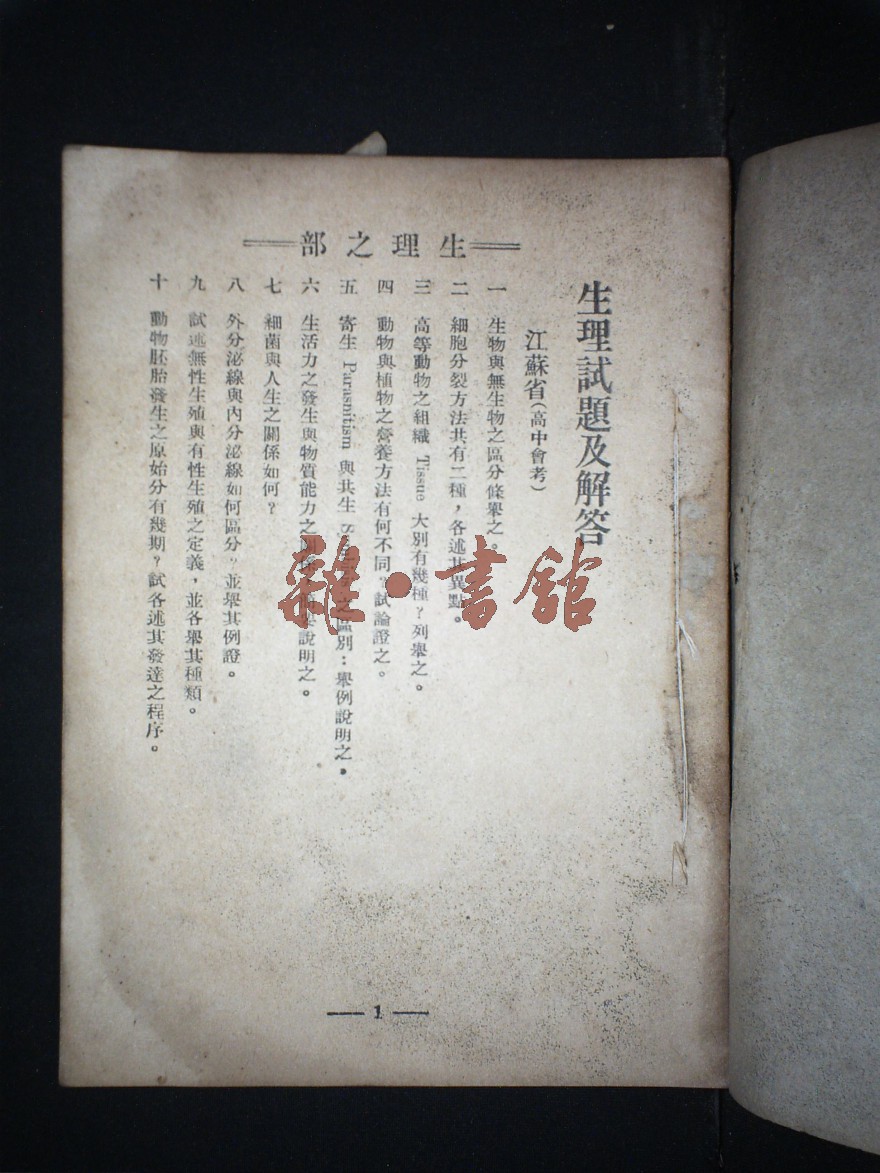 生理之部
生理試題及解答
江蘇省(高中會考)
一 生物與無生物之區分條舉之。
二 細胞分裂方法共有二種,各述其異點。
三 高等動物之組織 Tissue 大別有幾種?列舉之。
四 動物與植物之營養方法有何不同?試論證之。
五 寄生 Parasnitism 與共生 之區別:舉例說明之。
六 生活力之發生與物質能力之關係 說明之。
七 細菌與人生之關係如何?
八 外分泌線與內分泌線如何區分?並舉其例證。
九 試述無性生殖與有性生殖之定義,並各舉其種類。
十 動物胚胎發生之原始分有幾期?試各述其發達之程序。
1
雜·書館